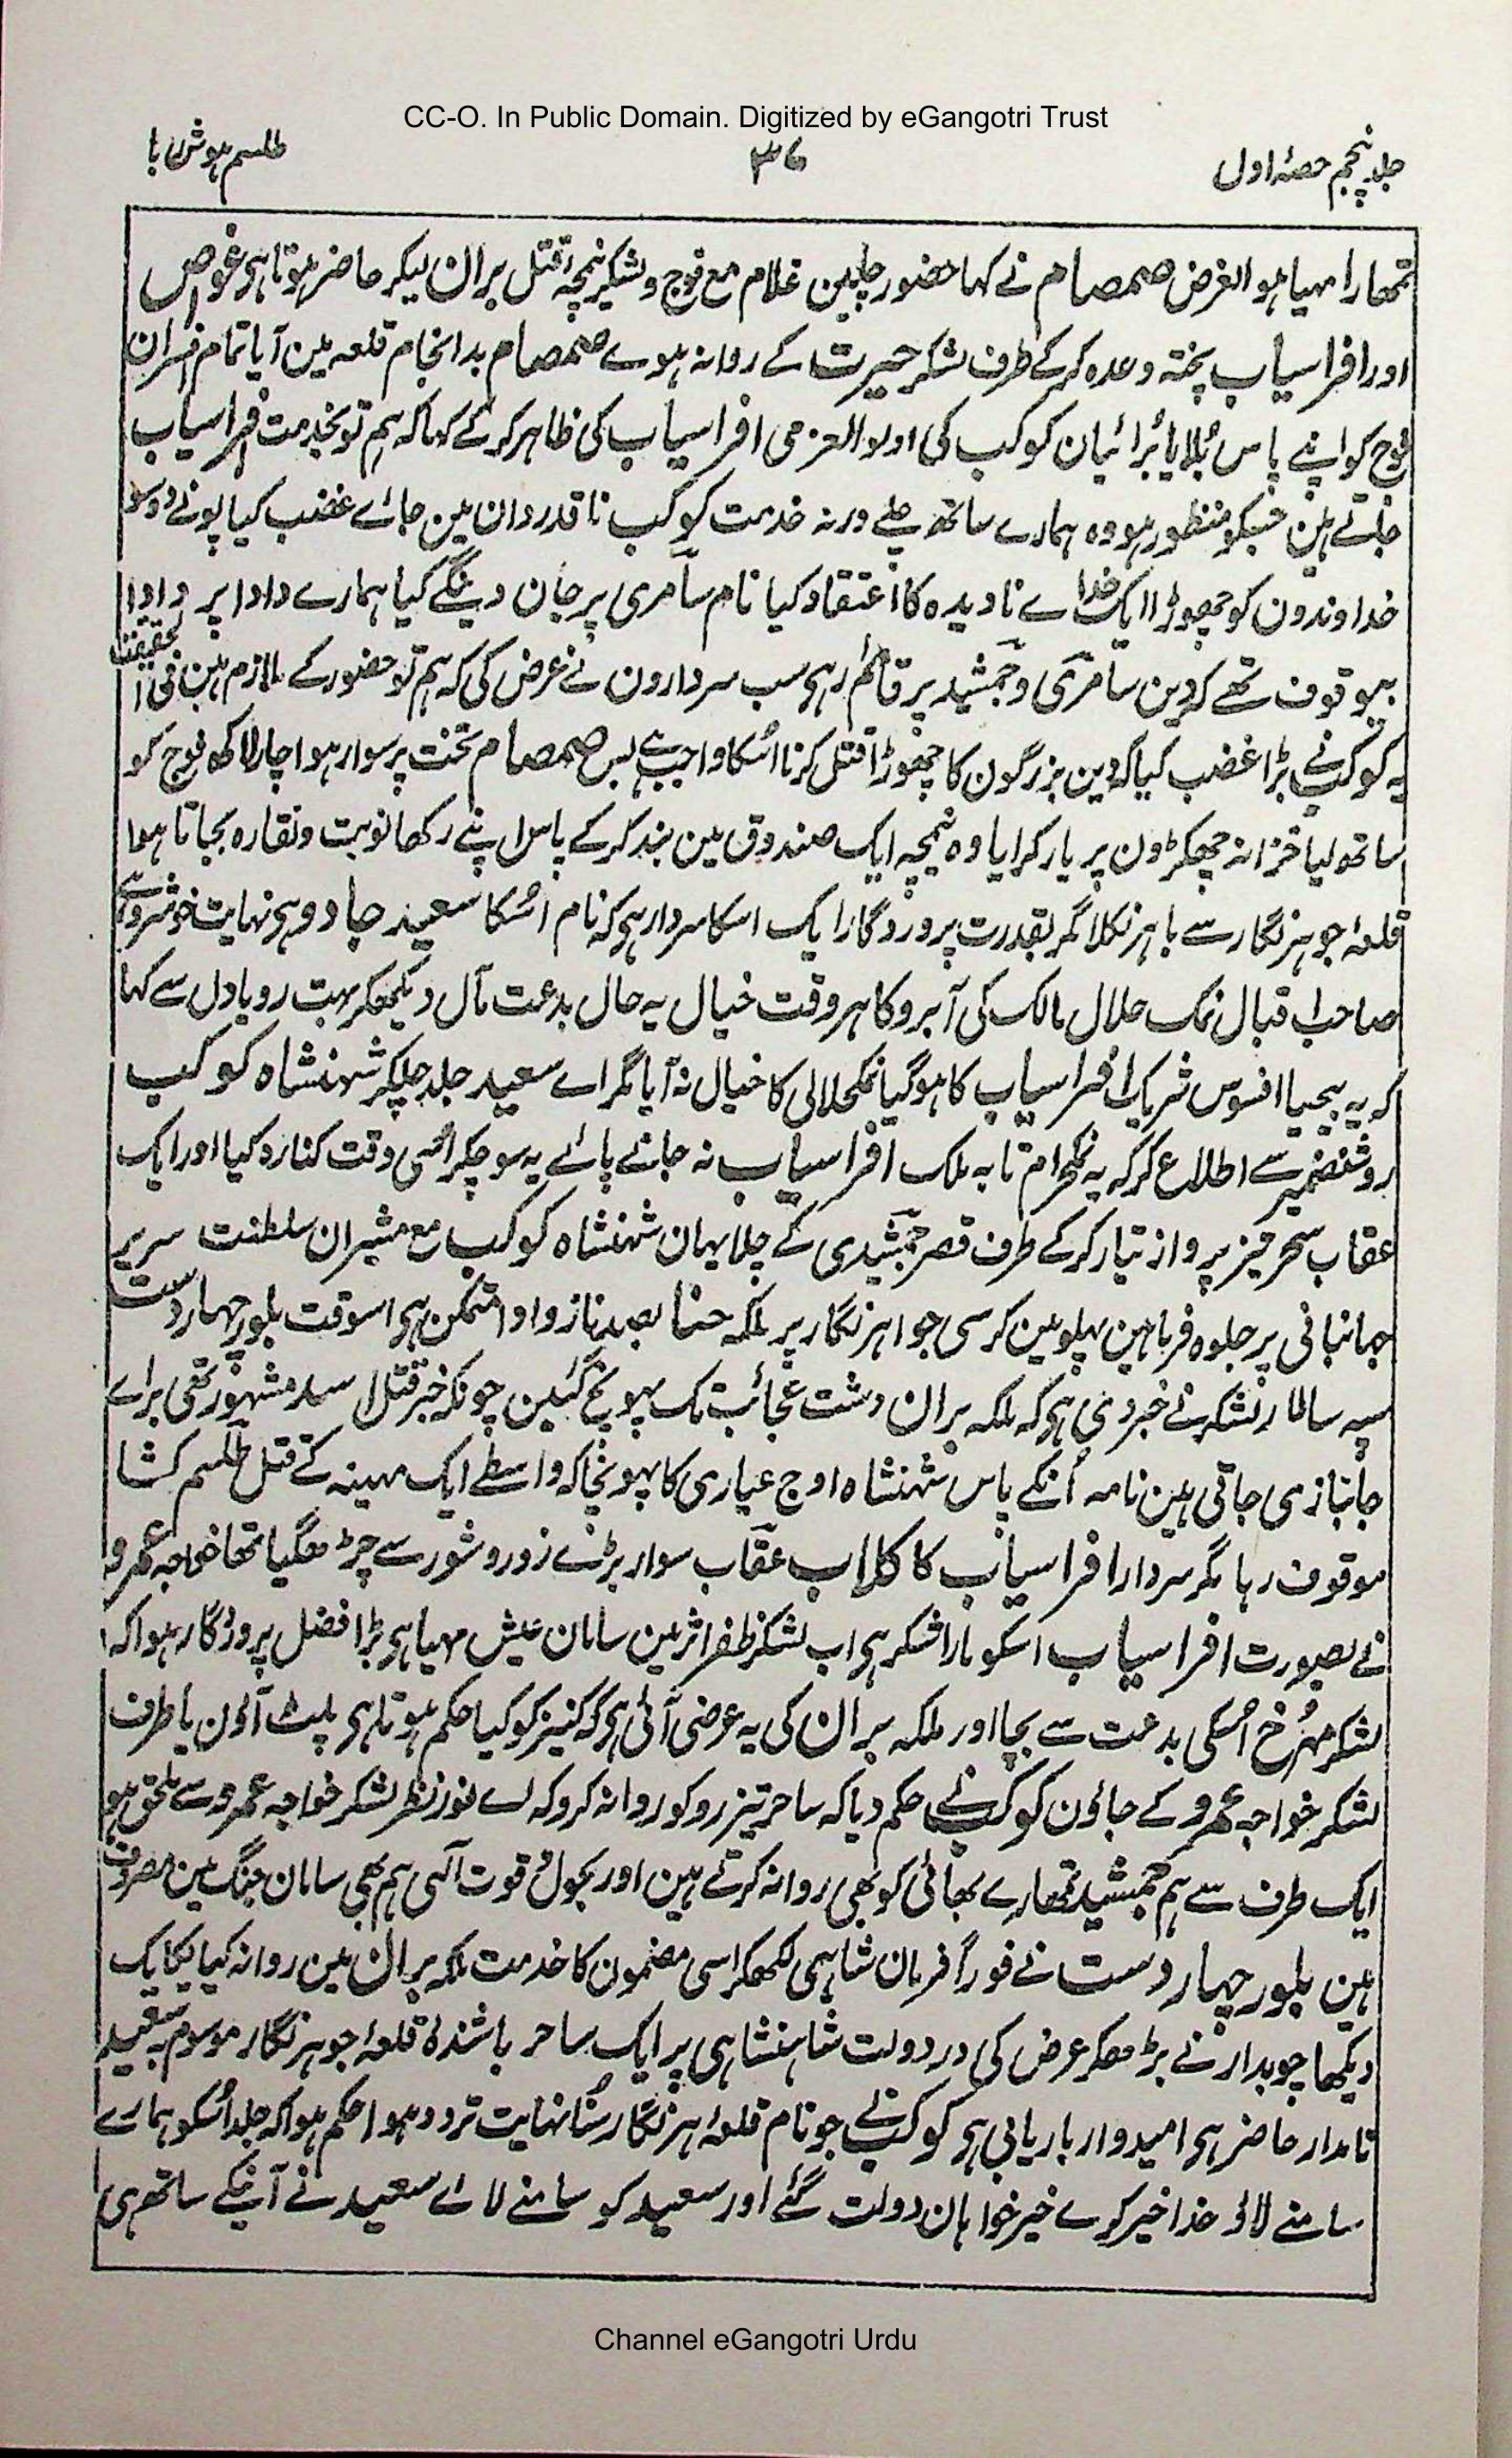 CC-O. In Public Domain. Digitized by eGangotri Trust
جلد پنجم حصۂ اول
۳۶
طلسم ہوش ربا
تمھارا مہیا ہو الغرض صمصام نے کہا حضور چلیین غلام مع فوج و لشکر نیمچۂ قتل بران لیکر حاضر ہوتا ہی غواص
اور افراسیاب پختہ وعدہ کر کے طرف لشکر حیرت کے روانہ ہوے صمصام بد انجام قلعہ مین آیا تمام افسران
فوج کو اپنے پاس بُلایا بُرائیان کوکب کی اولوالعزمی افراسیاب کی ظاہر کر کے کہا کہ ہم تو بخدمت افراسیاب
جاتے ہین جسکو منظور ہو وہ ہمارے ساتھ چلے ورنہ خدمت کوکب ناقدردان مین جاے غضب کیا پونے دو سو
خداوندون کو چھوڑا ایک خداے نادیدہ کا اعتقاد کیا نام سامری پر جان دینگے کیا ہمارے دادا پر دادا
بیوقوف تھے کہ دین سامری و جمشید پر قائم رہی سب سردارون نے عرض کی کہ ہم تو حضور کے ملازم ہین فی الحقیقت
یہ کوکب نے بڑا غضب کیا کہ دین بزرگون کا چھوڑا قتل کرنا اُسکا واجب ہے بس صمصام تخت پر سوار ہوا چار لاکھ فوج کو
ساتھ لیا خزانہ چھکڑون پر بار کرایا وہ نیمچہ ایک صندوق مین بند کر کے پاس اپنے رکھا نوبت و نقارہ بجاتا ہوا
قلعۂ جوہر نگار سے باہر نکلا مگر بقدرت پروردگار ایک اسکا سردار ہی کہ نام اُسکا سعید جادو ہی نہایت خوشرو ہے
صاحب اقبال نمک حلال مالک کی آبرو کا ہر وقت خیال یہ حال بدعت مآل دیکھکر بہت رویا دل سے کہا
کہ یہ بیحیا افسوس شریک افراسیاب کا ہوگیا نمکحلالی کا خیال نہ آیا مگر اے سعید جلد چلکر شہنشاہ کوکب
روشنضمیر سے اطلاع کر کہ یہ نمکحرام تا بہ ملک افراسیاب نہ جانے پائے یہ سوچکر اُسی وقت کنارہ کیا اور ایک
عقاب سحر تیز پرواز تیار کر کے طرف قصر جمشیدی کے چلا یہان شہنشاہ کوکب مع مشیران سلطنت سریر
جہانبانی پر جلوہ فرما ہین پہلو مین کرسی جواہر نگار پر ملکہ حنا بصد ناز و ادا متمکن ہی اسوقت بلور چہار دست
سپہ سالار لشکر نے خبر دی ہی کہ ملکہ بران دشت عجائب تک پہونچ گئین چونکہ خبر قتل اسد مشہور تھی براے
جانبازی جاتی ہین نامہ اُنکے پاس شہنشاہ اوج عیاری کا پہونچا کہ واسطے ایک مہینہ کے قتل طلسم کشا
موقوف رہا مگر سردار افراسیاب کا کلاب عقاب سوار بڑے زور و شور سے چڑھ گیا تھا خواجہ عمرو
نے بصورت افراسیاب اسکو مارا شکر ہی اب لشکر ظفر اثر مین سامان عیش مہیا ہی بڑا فضل پروردگار ہوا کہ
لشکر مہرخ اُسکی بدعت سے بچا اور ملکہ بران کی یہ عرضی آئی ہی کہ کنیز کو کیا حکم ہوتا ہی پلٹ آؤن یا طرف
لشکر خواجہ عمرو کے جاؤن کوکب نے حکم دیا کہ ساحر تیز رو کو روانہ کرو کہ اے نور نظر لشکر خواجہ عمرو سے ملحق ہو
ایک طرف سے ہم جمشید تمھارے بھائی کو بھی روانہ کرتے ہین اور بحول و قوت الٰہی ہم بھی سامان جنگ مین مصروف
ہین بلور چہار دست نے فوراً فرمان شاہی لکھکر اسی مضمون کا خدمت ملکہ بران مین روانہ کیا یکایک
دیکھا چوبدار نے بڑھکر عرض کی در دولت شاہنشاہی پر ایک ساحر باشندۂ قلعۂ جوہر نگار موسوم بہ سعید
نامدار حاضر ہی امیدوار باریابی ہی کوکب نے جو نام قلعۂ ہر نگار سُنا نہایت تردد ہوا حکم ہوا کہ جلد اُسکو ہمارے
سامنے لاؤ خدا خیر کرے خیر خواہان دولت گئے اور سعید کو سامنے لائے سعید نے آنیکے ساتھ ہی
Channel eGangotri Urdu